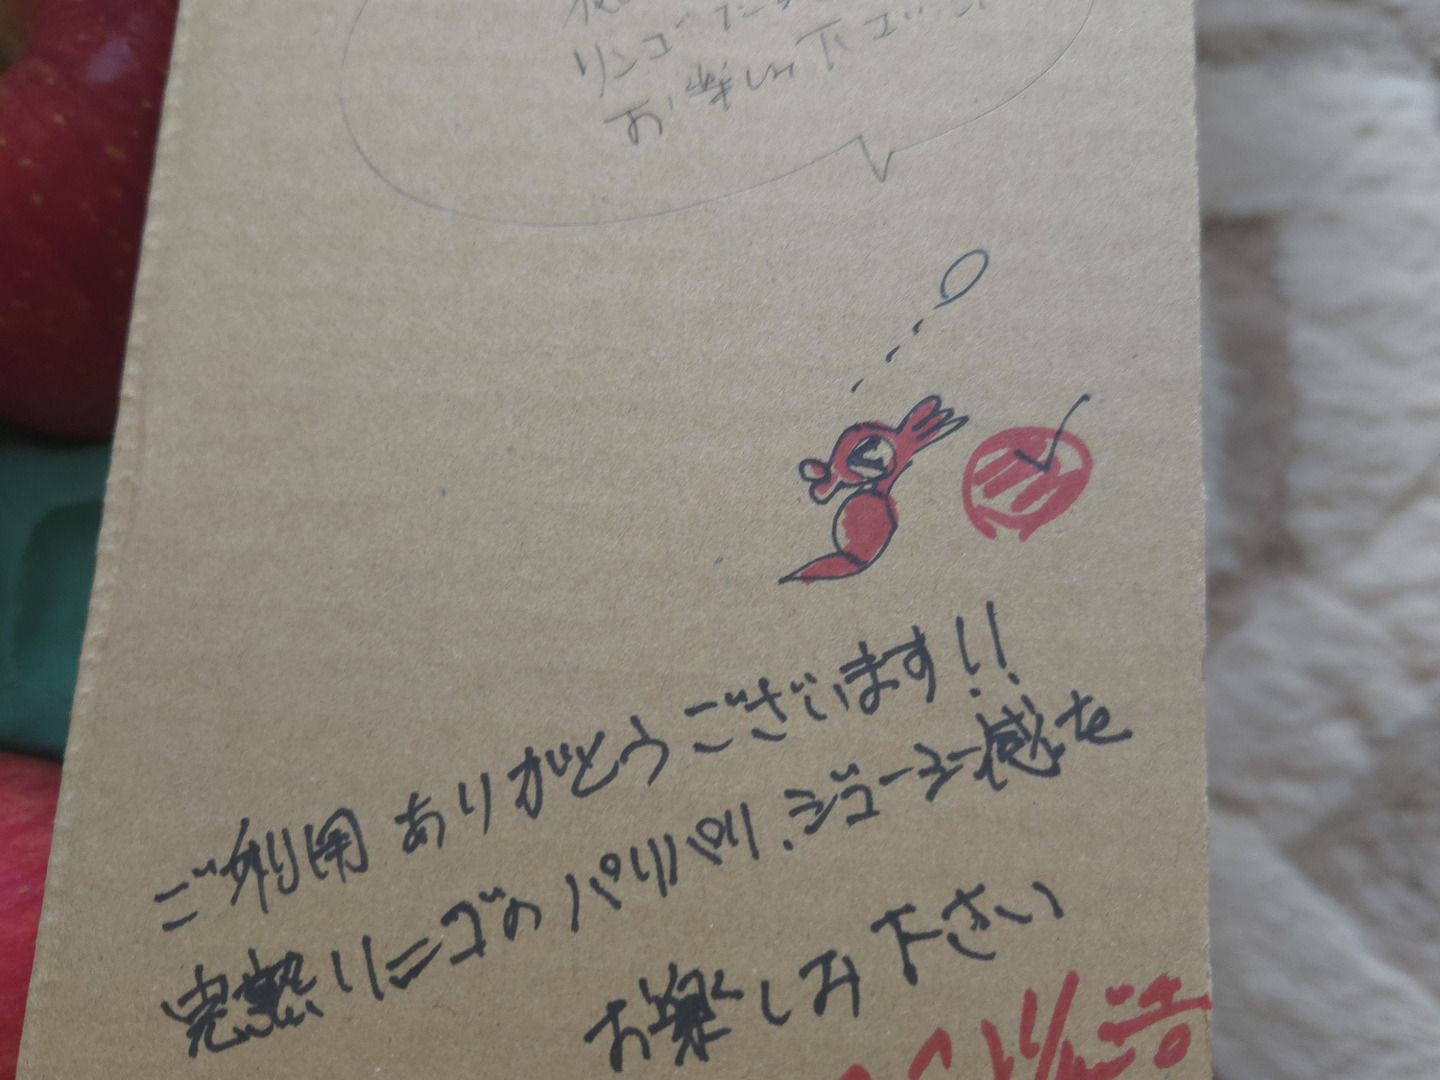 リンゴ
お楽しみ下
ご利用ありがとうございます!!
完熟リンゴのパリパリ、ジューシー感を
お楽しみ下さい